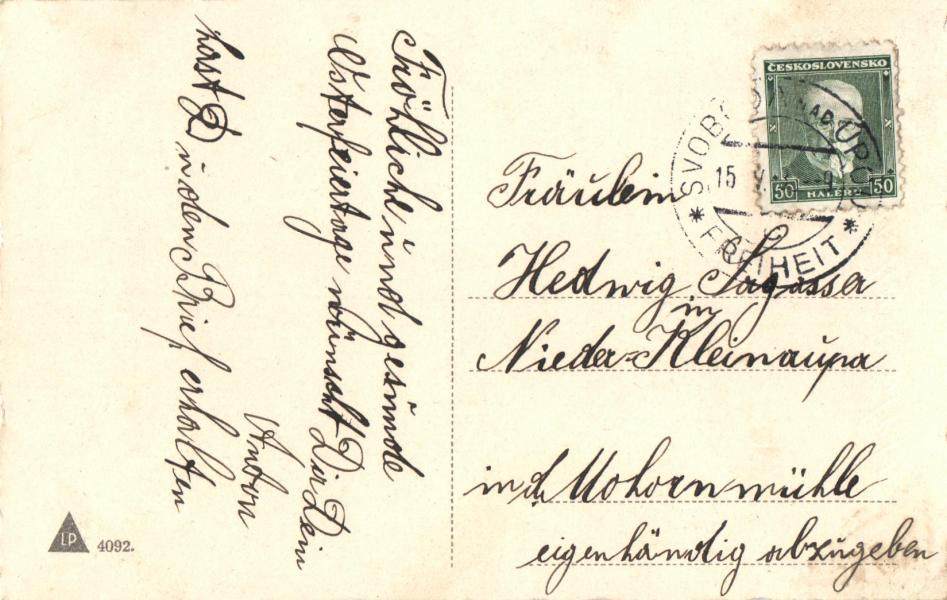 Fröhliche und gesunde
Osterfeiertage wünscht Dir Dein
Anton
hast Du den Brief erhalten
LP 4092.
ČESKOSLOVENSKO
50 HALÉŘŮ 50
SVOBODA NAD ÚPOU
15
* FREIHEIT *
Fräulein
Hedwig Sagasser
in
Nieder-Kleinaupa
in d. Mohornmühle
eigenhändig abzugeben